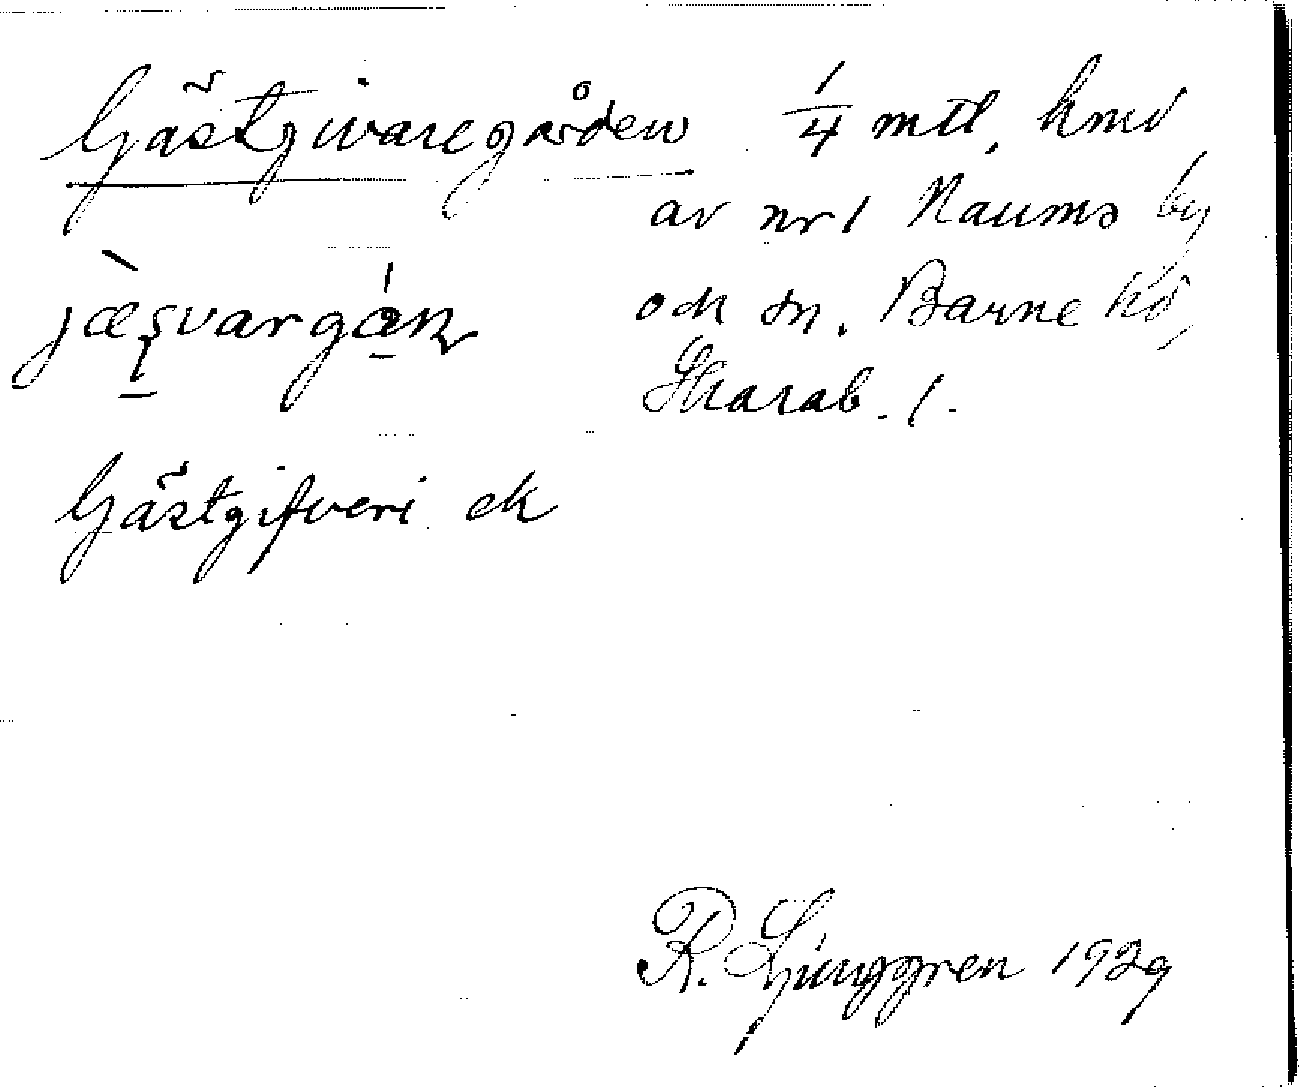 Gästgivaregården 1/4 mtl, hmd
av nr 1 Naums by
och sn. Barne hd,
Skarab. l.
Gästgifveri ek
R. Ljunggren 1929